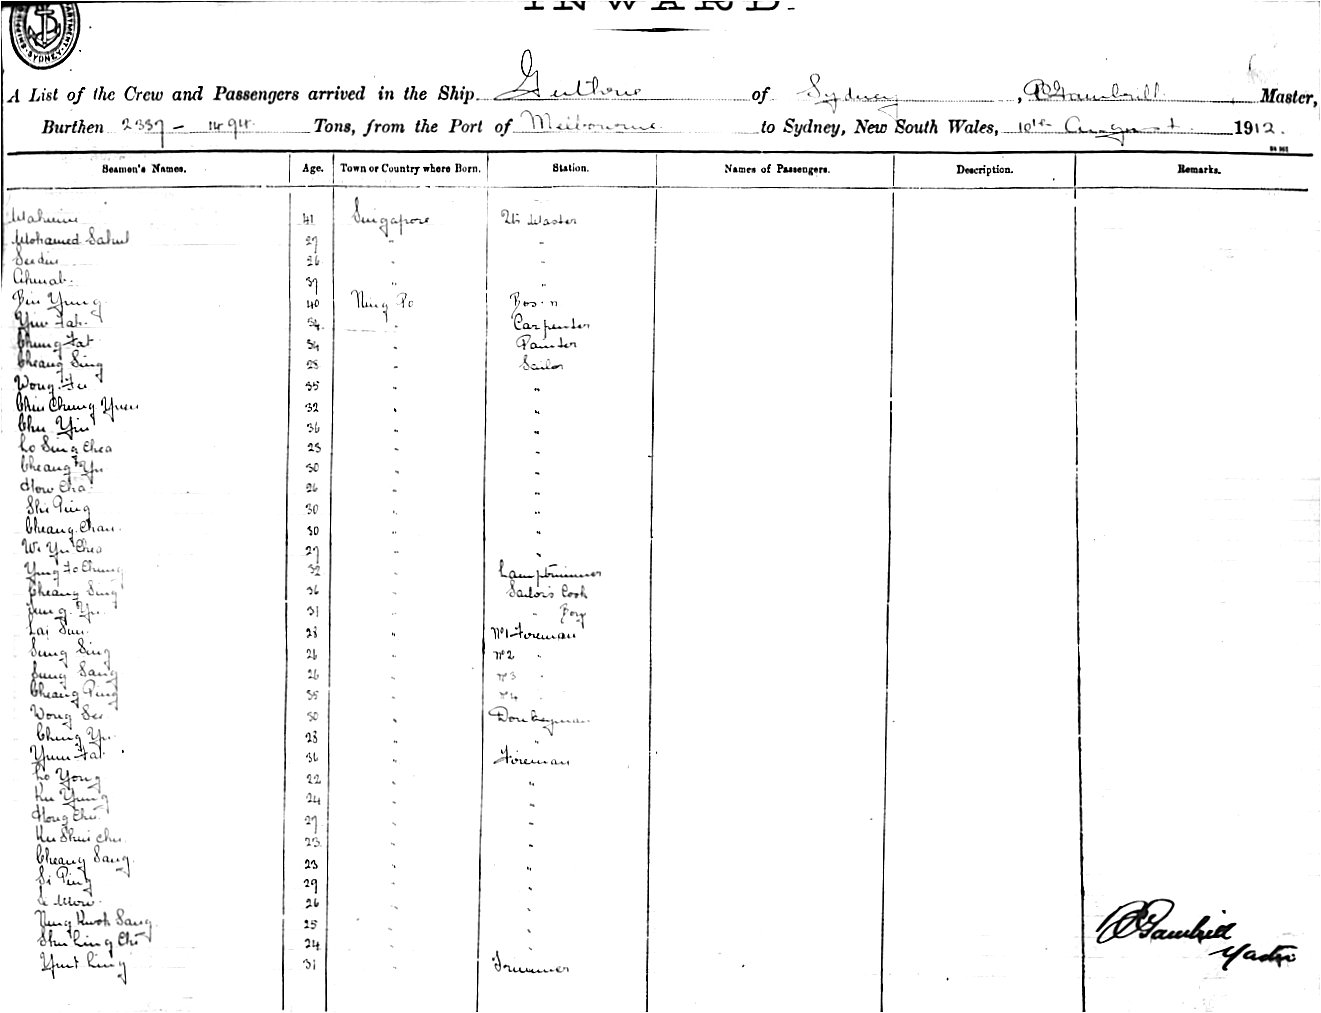 INWARD.
SYDNEY
A List of the Crew and Passengers arrived in the Ship Guthrie of Sydney, Master,
Burthen 2337 - 1494 Tons, from the Port of Melbourne to Sydney, New South Wales, 10th August 1912.
Seamen's Names. Age. Town or Country where Born. Station. Names of Passengers. Description. Remarks.
41 Singapore Qtr Master
Mohamed Sahul 27 " "
26 " "
37 " "
40 Ning Po Bos'n
34 " Carpenter
Chung Fat 34 " Painter
Cheang Sing 28 " Sailor
Wong Fu 35 " "
Chin Chung Yuen 32 " "
Chu Yin 36 " "
Lo Sing Chea 25 " "
Cheang Yu 30 " "
How Cha 26 " "
Shi Ping 30 " "
Cheang Chan 30 " "
We Yu Chea 27 " "
Yung Fo Chung 32 " Lamptrimmer
Cheang Sing 36 " Sailor's Cook
Yu 31 " " Boy
Lai Sun 28 " No 1 Foreman
Sung Sing 26 " No 2 "
Sung Sang 26 " No 3 "
Cheang Ping 35 " No 4 "
Wong See 30 " Donkeyman
Ching Yu 28 " "
Yuen Fat 36 " Fireman
Lo Yong 22 " "
Ku Yung 24 " "
Hong Chu 27 " "
Ku Shui Chu 23 " "
Cheang Sang 23 " "
Si Ping 29 " "
26 " "
Ning Kwok Sang 25 " "
Shu Ling Chi 24 " "
Ling 31 " Trimmer
Master